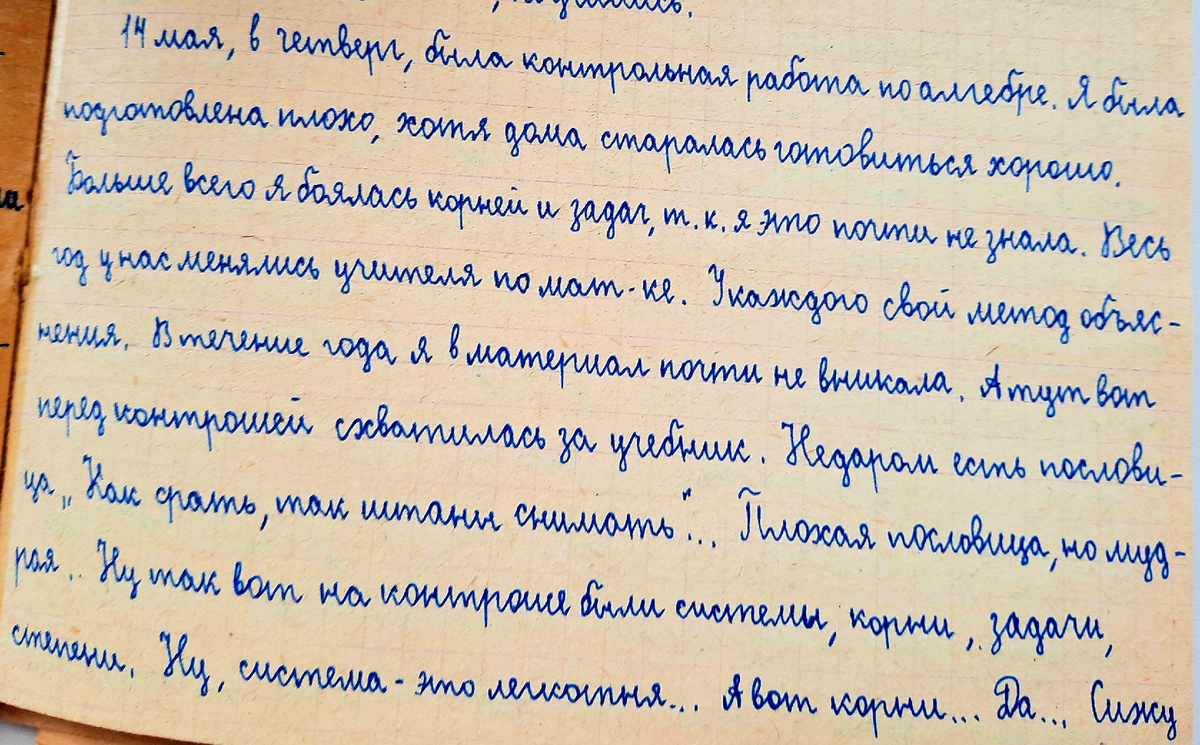 14 мая, в четверг, была контрольная работа по алгебре. Я была
подготовлена плохо, хотя дома старалась готовиться хорошо.
Больше всего я боялась корней и задач, т.к. я это почти не знала. Весь
год у нас менялись учителя по мат-ке. У каждого свой метод объяс-
нения. В течение года я в материал почти не вникала. А тут вот
перед контрошей схватилась за учебник. Недаром есть послови-
ца „Как срать, так штаны снимать"... Плохая пословица, но муд-
рая.. Ну так вот на контроше были системы, корни, задачи,
степени. Ну, система - это легкотня... А вот корни... Да... Сижу